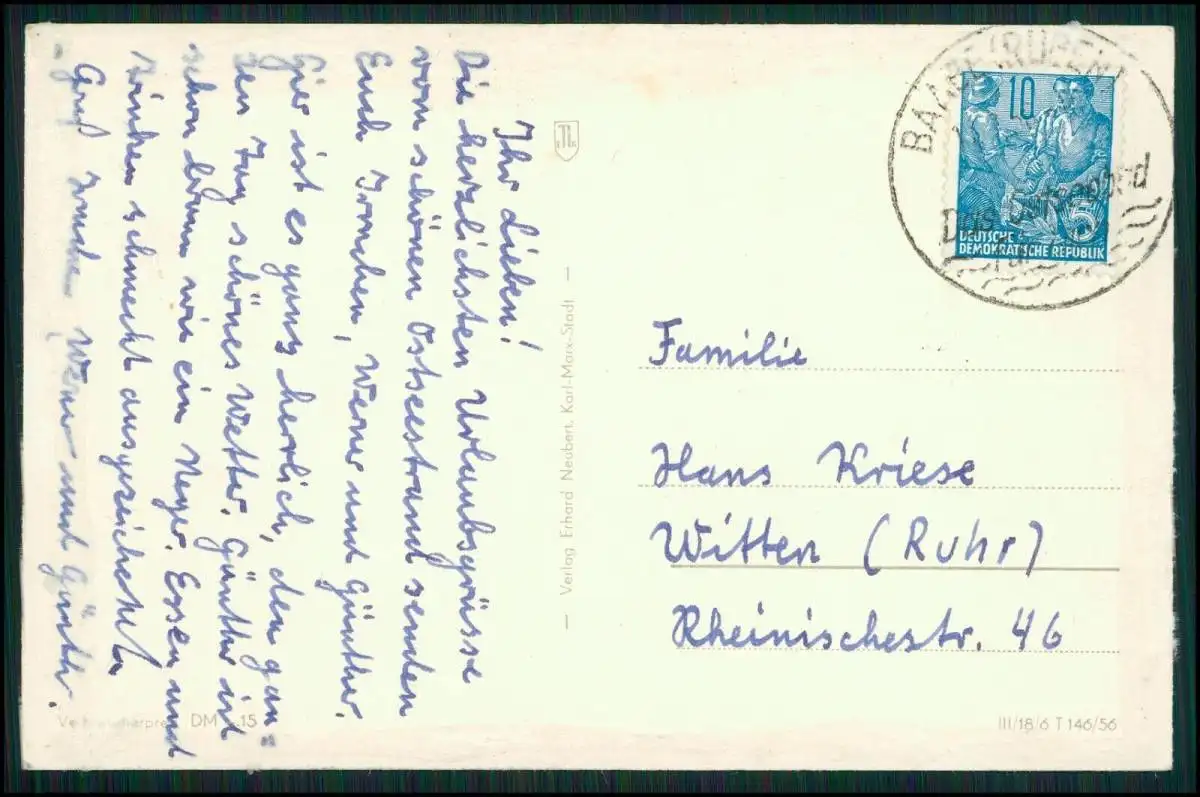 Ihr Lieben!
Die herzlichsten Urlaubsgrüsse
vom schönen Ostseestrand senden
Euch Irmchen, Werner und Günther.
Hier ist es ganz herrlich, den gan=
zen Tag schönes Wetter. Günther ist
schon braun wie ein Neger. Essen und
trinken schmeckt ausgezeichent.
Gruß Irmchen, Werner und Günther.
Verbraucherpreis DM -.15
— Verlag Erhard Neubert, Karl-Marx-Stadt —
BAABE (RÜGEN)
Das Ostseebad
für
10
5
DEUTSCHE
DEMOKRATISCHE REPUBLIK
Familie
Hans Kriese
Witten (Ruhr)
Rheinischestr. 46
III/18/6 T 146/56